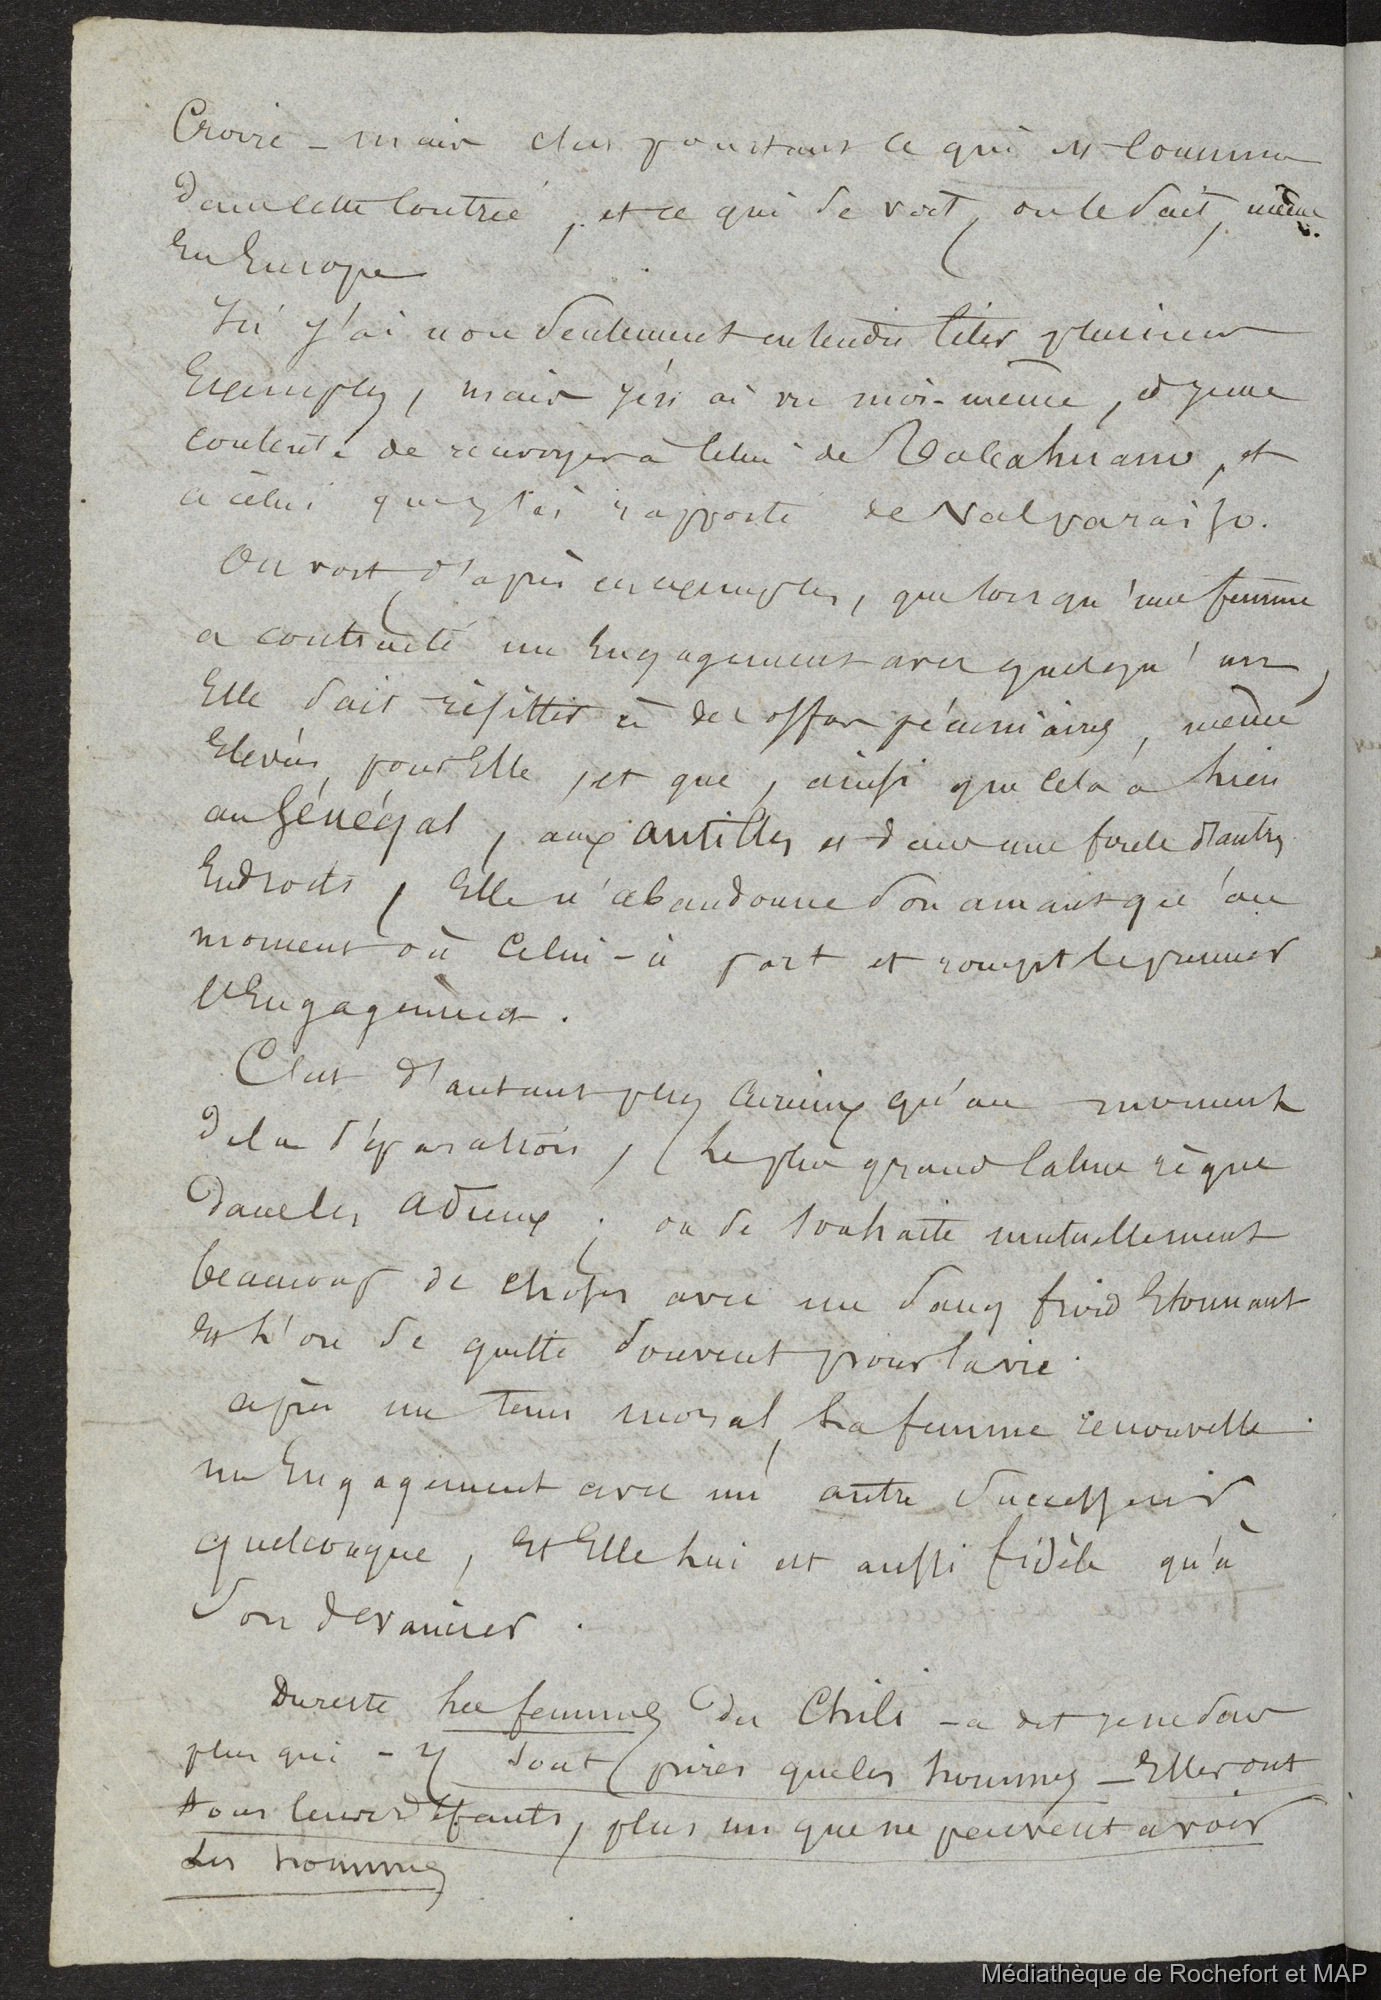 Croire - mais c'est pourtant ce qui est commun
dans cette Contrée, et ce qui se voit, on le sait, même
En Europe
Ici j'ai non seulement entendu Citer plusieurs
Exemples, mais j'en ai vu moi-même, et je me
contente de renvoyer à Celui de Talcahuano, et
a celui que j'ai rapporté de Valparaiso.
On voit d'après ces exemples, que lorsqu'une femme
a contracté un Engagement avec quelqu'un,
Elle sait résister à des offres pécuniaires, même
Elevées pour Elle, et que, ainsi que Cela a lieu
au Sénégal, aux antilles et dans une foule d'autres
Endroits, Elle n'abandonne son amant qu'au
moment où Celui-ci part et rompt le premier
l'Engagement.
C'est d'autant plus Curieux qu'au moment
de la séparation, le plus grand Calme règne
dans les adieux; on se souhaite mutuellement
beaucoup de choses avec un sang froid Etonnant
Et l'on se quitte souvent pour la vie.
après un tems moral, la femme renouvelle
un Engagement avec un autre successeur
quelconque, Et Elle lui est aussi fidèle qu'à
son devancier.
Du reste les femmes du Chili - a dit je ne sais
plus qui - y sont pires que les hommes - Elles ont
tous leurs défauts, plus un que ne peuvent avoir
les hommes
Médiathèque de Rochefort et MAP